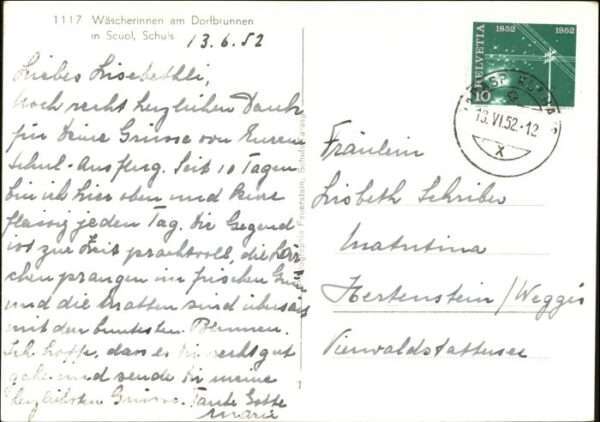 1117 Wäscherinnen am Dorfbrunnen
in Scuol, Schuls
13.6.52
Liebes Lisebethli,
Noch recht herzlichen Dank
für Deine Grüsse von Eurem
Schul-Ausflug. Seit 10 Tagen
bin ich hier oben und
fleissig jeden Tag. Die Gegend
ist zur Zeit prachtvoll, die
chen prangen im frischen Grün
und die Matten sind übersät
mit den buntesten Blumen.
Ich hoffe, dass es Dir recht gut
gehe und sende Dir meine
herzlichsten Grüsse. Tante Gotte
Marie
Feuerstein, Schuls
HELVETIA
1852 1952
10
13.VI.52-12
X
Fräulein
Lisbeth Schriber
Matutina
Hertenstein/Weggis
Vierwaldstättersee